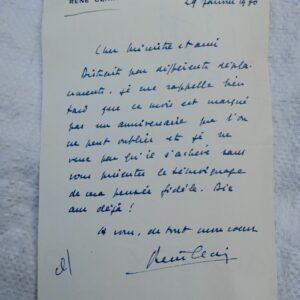 RENÉ CLAIR
29 janvier 1980
Cher ministre et ami
Distrait par différents dépla-
cements, je me rappelle bien
tard que ce mois est marqué
par un anniversaire que l'on
ne peut oublier et je ne
veux pas qu'il s'achève sans
vous présenter le témoignage
de ma pensée fidèle. Dix
ans déjà !
A vous, de tout mon coeur
René Clair